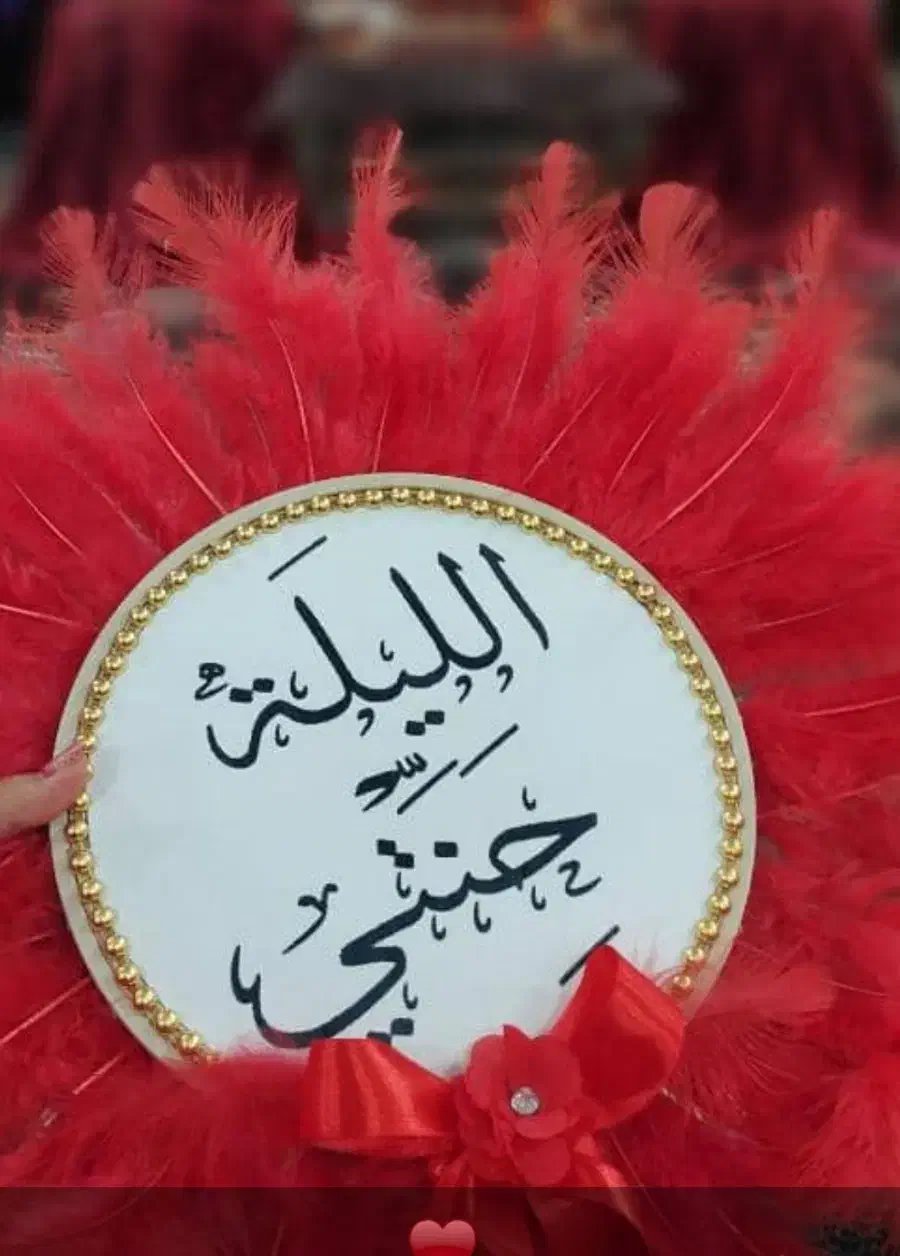 الليلة
حنتي